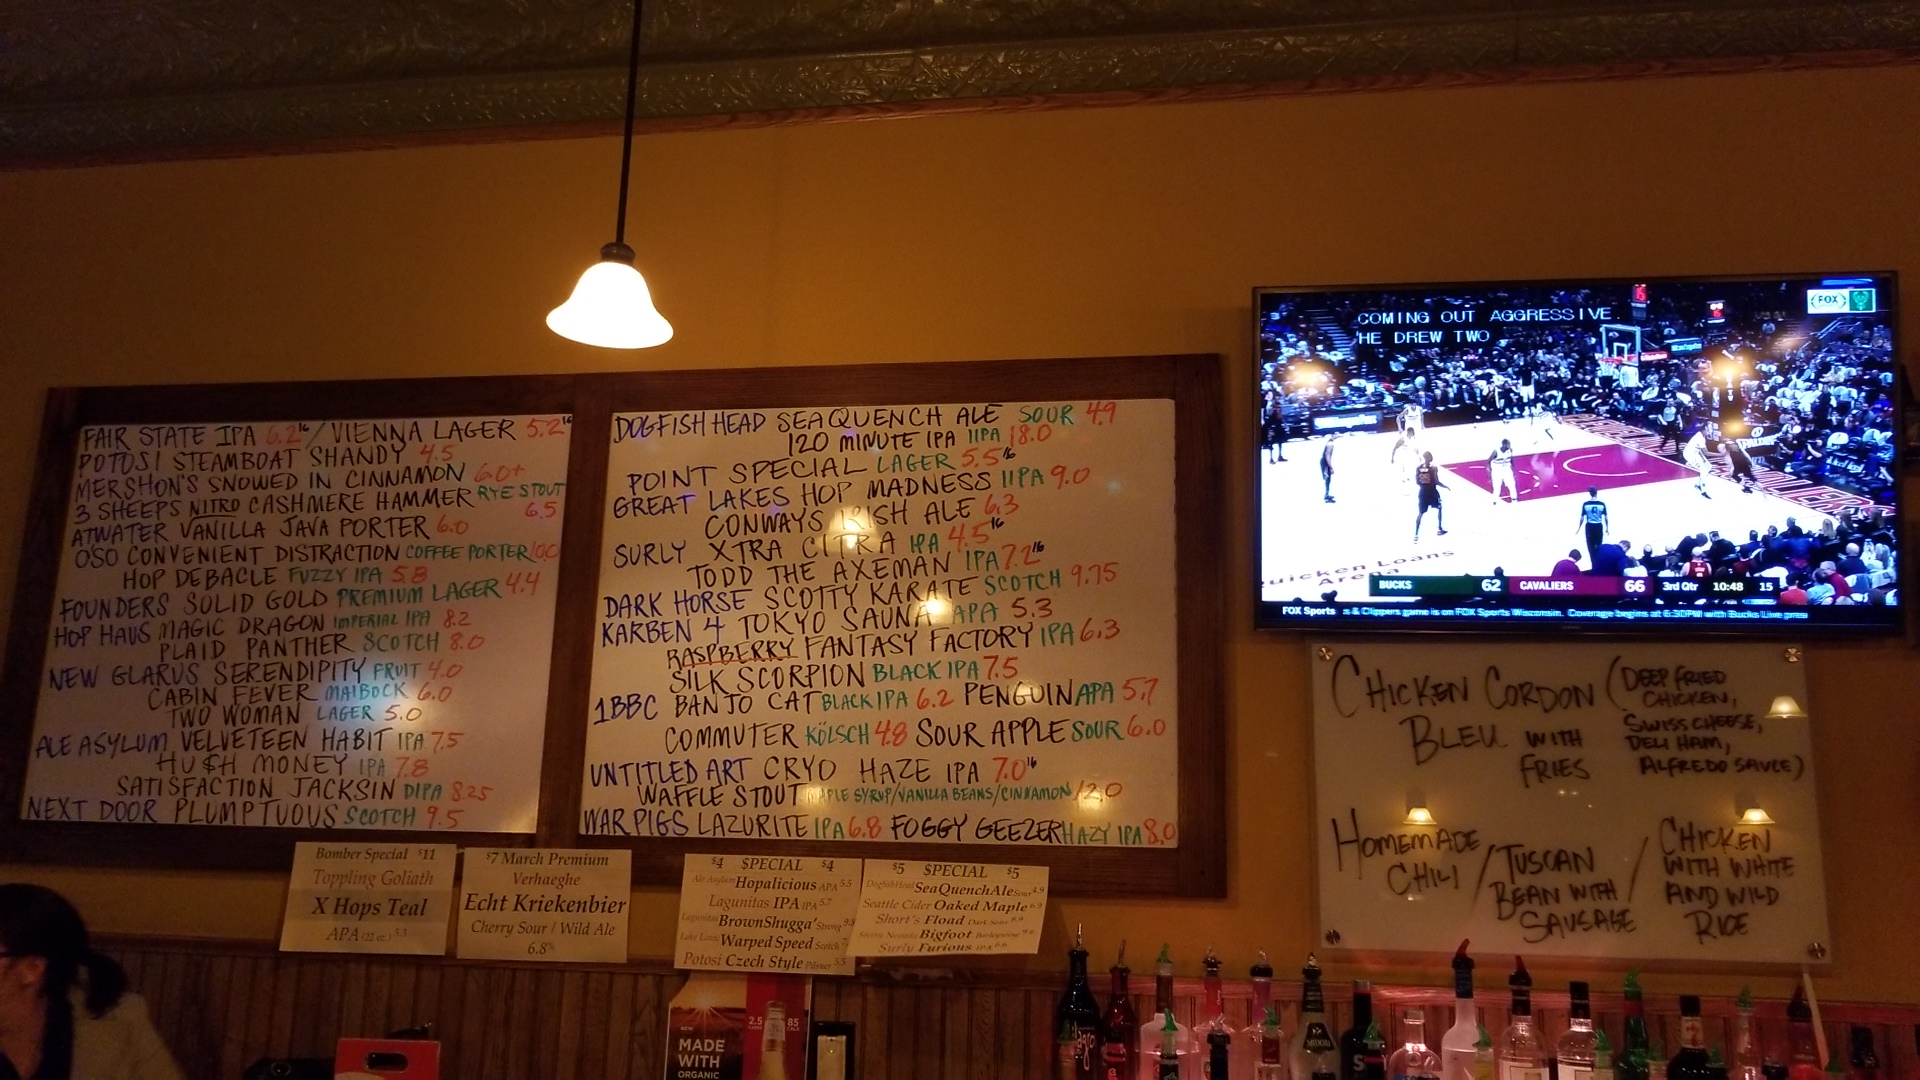 FAIR STATE IPA 6.2 16 / VIENNA LAGER 5.2 16
POTOSI STEAMBOAT SHANDY 4.5
MERSHON'S SNOWED IN CINNAMON 6.0+
3 SHEEPS NITRO CASHMERE HAMMER RYE STOUT 6.5
ATWATER VANILLA JAVA PORTER 6.0
O'SO CONVENIENT DISTRACTION COFFEE PORTER
HOP DEBACLE FUZZY IPA 5.8
FOUNDERS SOLID GOLD PREMIUM LAGER 4.4
HOP HAUS MAGIC DRAGON IMPERIAL IPA 8.2
PLAID PANTHER SCOTCH 8.0
NEW GLARUS SERENDIPITY FRUIT 4.0
CABIN FEVER MAIBOCK 6.0
TWO WOMAN LAGER 5.0
ALE ASYLUM VELVETEEN HABIT IPA 7.5
HU$H MONEY IPA 7.8
SATISFACTION JACKSIN DIPA 8.25
NEXT DOOR PLUMPTUOUS SCOTCH 9.5
DOGFISH HEAD SEAQUENCH ALE SOUR 4.9
120 MINUTE IPA IIPA 18.0
POINT SPECIAL LAGER 5.5 16
GREAT LAKES HOP MADNESS IIPA 9.0
CONWAYS IRISH ALE 6.3
SURLY XTRA CITRA IPA 4.5 16
TODD THE AXEMAN IPA 7.2 16
DARK HORSE SCOTTY KARATE SCOTCH 9.75
KARBEN 4 TOKYO SAUNA APA 5.3
RASPBERRY FANTASY FACTORY IPA 6.3
SILK SCORPION BLACK IPA 7.5
1BBC BANJO CAT BLACK IPA 6.2 PENGUIN APA 5.7
COMMUTER KÖLSCH 4.8 SOUR APPLE SOUR 6.0
UNTITLED ART CRYO HAZE IPA 7.0 16
WAFFLE STOUT MAPLE SYRUP/VANILLA BEANS/CINNAMON 12.0
WAR PIGS LAZURITE IPA 6.8 FOGGY GEEZER HAZY IPA 8.0
Bomber Special $11
Toppling Goliath
X Hops Teal
APA (22 oz.) 5.3
$7 March Premium
Verhaeghe
Echt Kriekenbier
Cherry Sour / Wild Ale
6.8%
$4 $PECIAL $4
Ale Asylum Hopalicious APA 5.5
Lagunitas IPA IPA 5.7
Lagunitas BrownShugga' Strong 9.8
Lake Louie Warped Speed Scotch
Potosi Czech Style Pilsner
$5 $PECIAL $5
Dogfish Head SeaQuenchAle Sour 4.9
Seattle Cider Oaked Maple 6.9
Short's Fload
Sierra Nevada Bigfoot Barleywine 9.6
Surly Furious IPA 6.6
COMING OUT AGGRESSIVE.
HE DREW TWO
FOX
Quicken Loans
Arena
BUCKS 62 CAVALIERS 66 3rd Qtr 10:48 15
FOX Sports s & Clippers game is on FOX Sports Wisconsin. Coverage begins at 6:30PM with Bucks Live prese
CHICKEN CORDON BLEU WITH FRIES
(DEEP FRIED
CHICKEN,
SWISS CHEESE,
DELI HAM,
ALFREDO SAUCE)
HOMEMADE
CHILI /
TUSCAN
BEAN WITH
SAUSAGE /
CHICKEN
WITH WHITE
AND WILD
RICE
NEW
MADE
WITH
ORGANIC
2.5 85
CALS
MIDORI